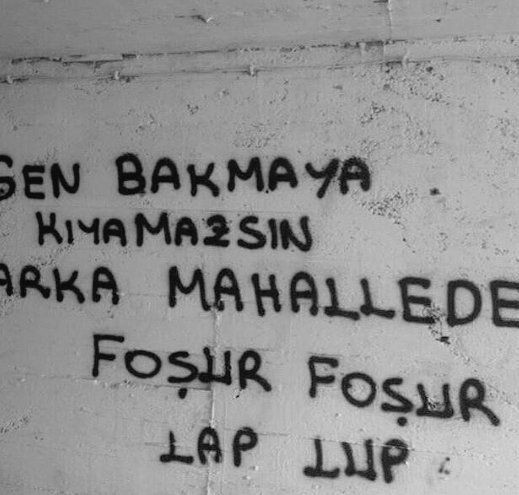 SEN BAKMAYA
KIYAMAZSIN
ARKA MAHALLEDE
FOŞUR FOŞUR
LAP LUP